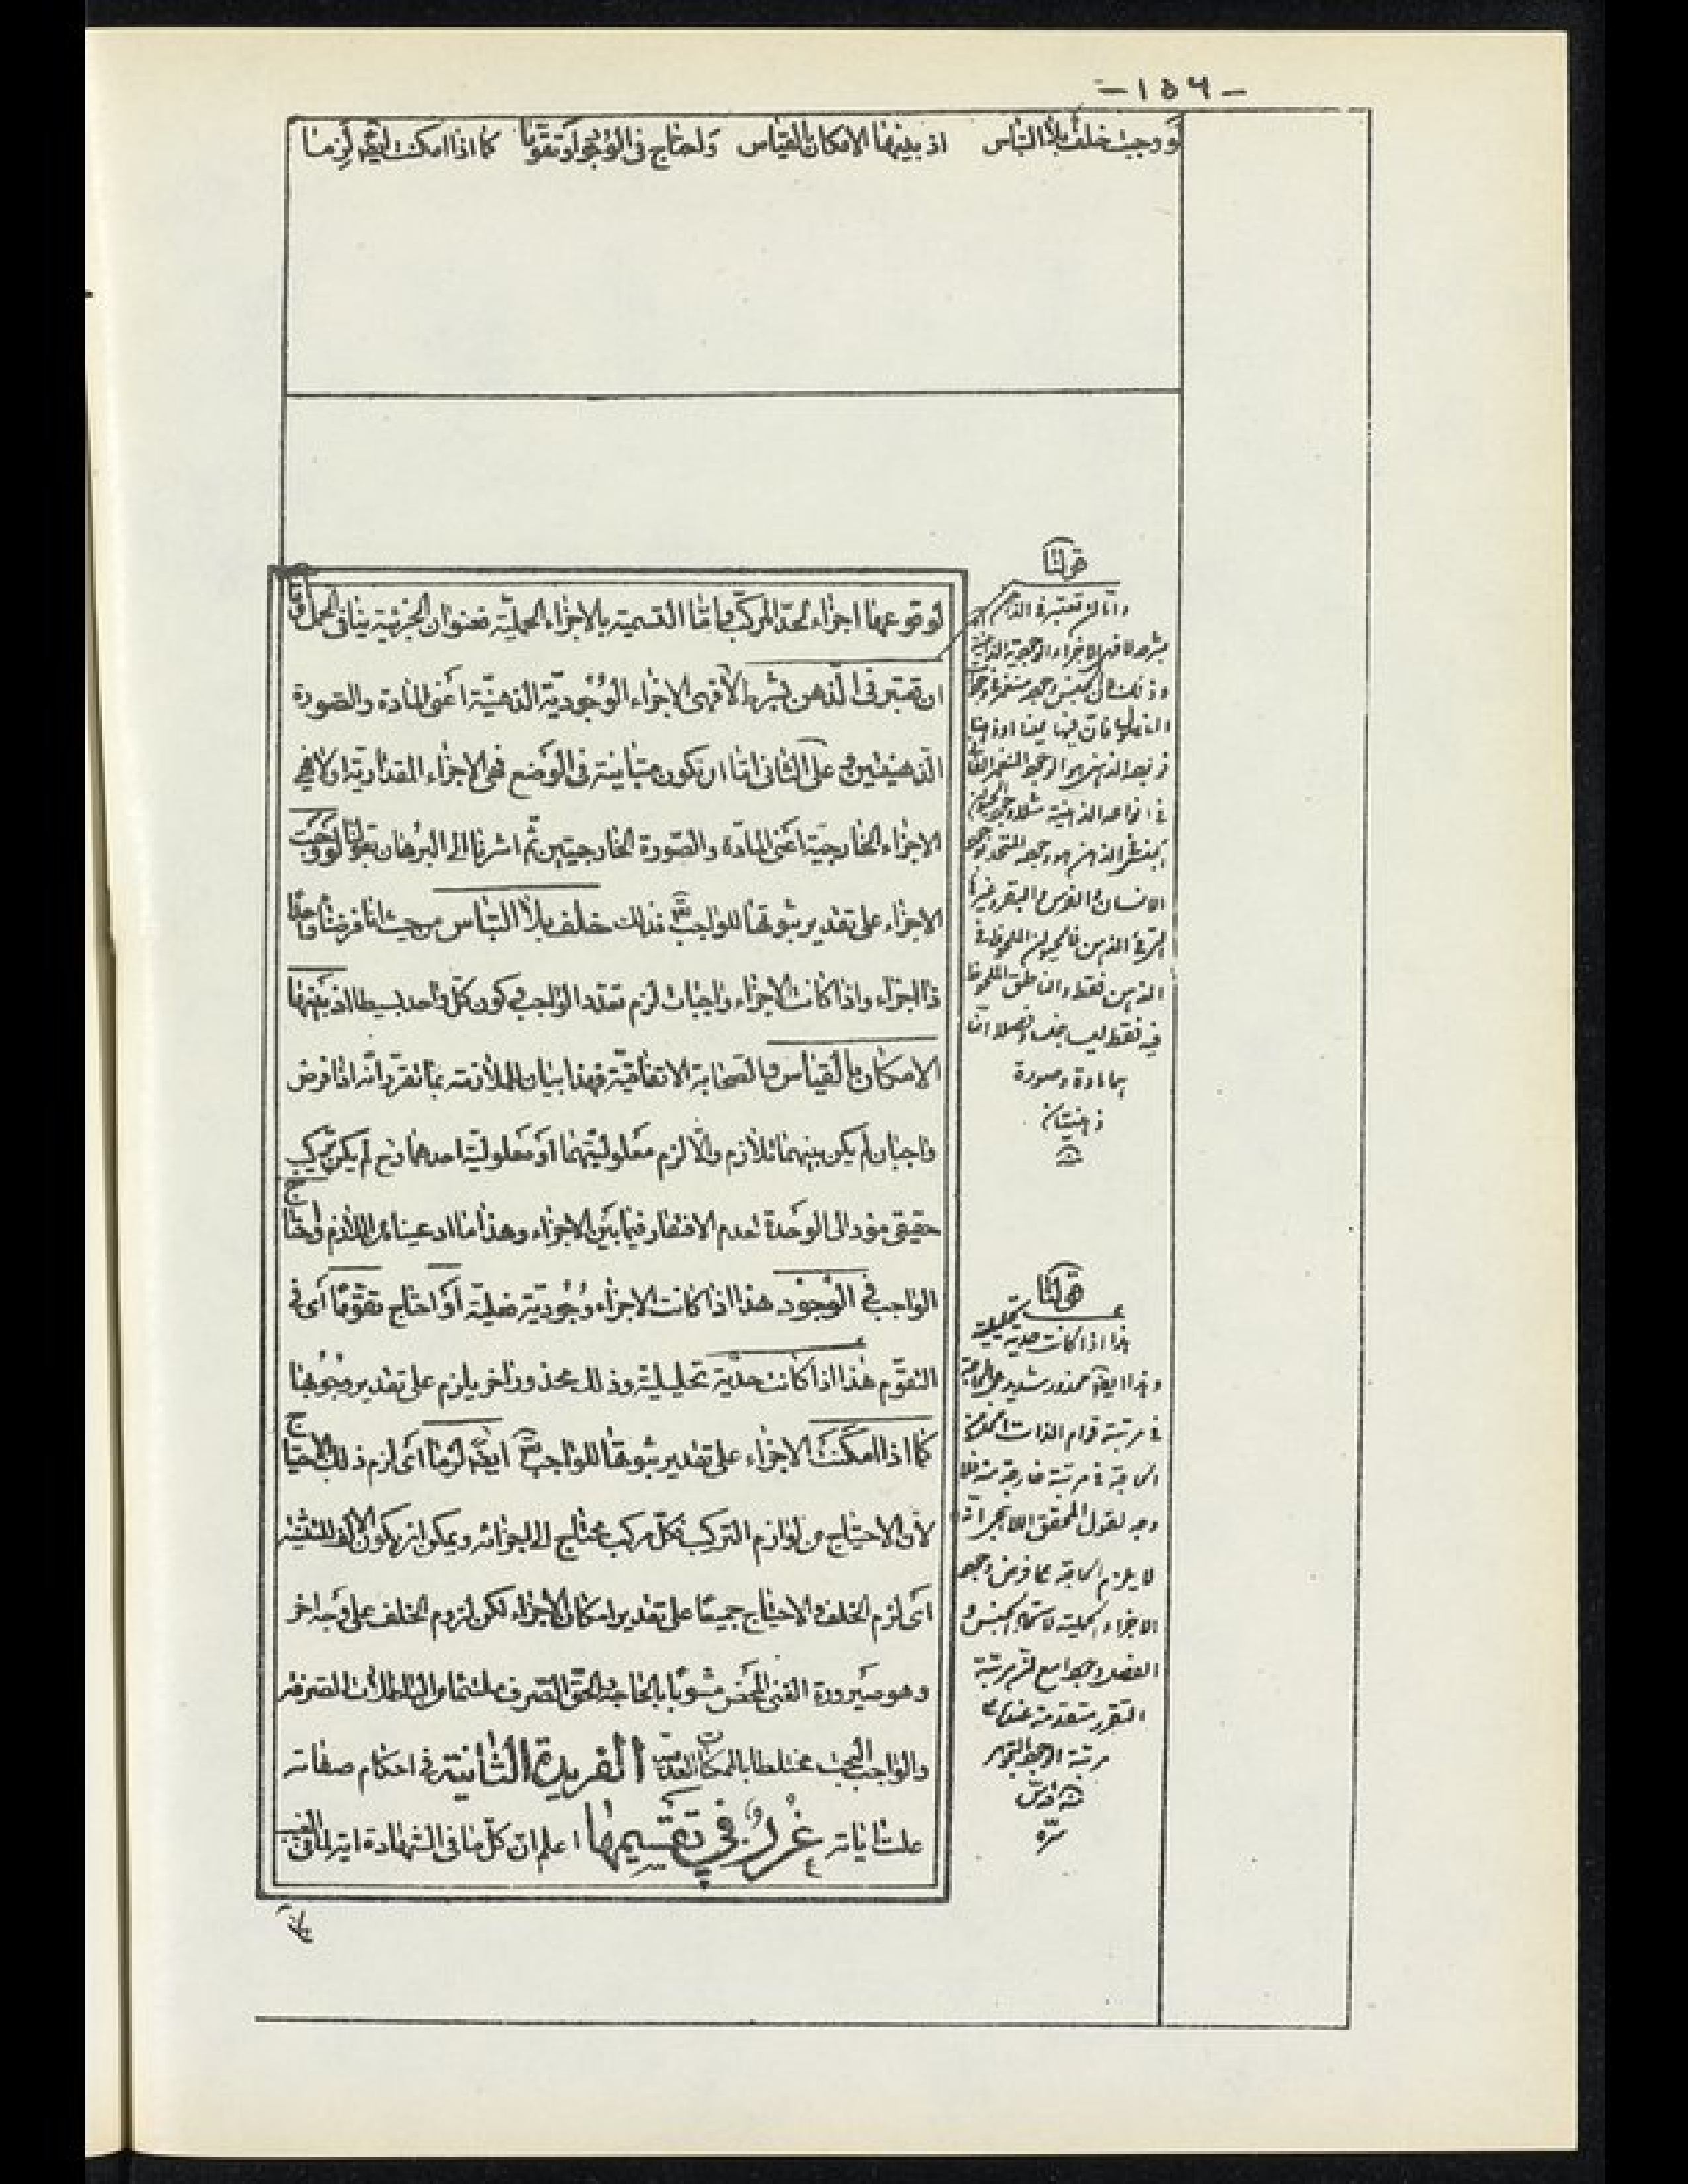 -۱۵۶-
لو وجبت خلف بلا التباس   اذ بينها الامكان بالقياس   ولحتاج في الوجود او تقوّما   كما اذا امكنت ايضا لزما
لوقوعها اجزاء لحدّ المركّب واما التسمية بالاجزاء الحمليّة فعنوان الجزئية ينافى الحمل وامّا
ان تعتبر فى الذهن بشرط لا فهى الاجزاء الوجوديّة الذهنيّة اعنى المادة والصورة
الذهنيتين وعلى الثانى امّا ان تكون متباينة فى الوضع فهى الاجزاء المقداريّة اولا فهى
الاجزاء الخارجيّة اعنى المادّة والصّورة الخارجيتين ثم اشرنا الى البرهان بقولنا لو وجبت
الاجزاء على تقدير ثبوتها للواجب تع فذلك خلف بلا التباس من حيث انا فرضنا واحدا
ذا اجزاء واذا كانت الاجزاء واجبات لزم تعدد الواجب وكون كلّ واحد بسيطا اذ بينها
الامكان بالقياس والصّحابة الاتفاقيّة فهذا بيان للملازمة بما تقرّر انّه اذا فرض
واجبان لم يكن بينهما تلازم والّا لزم معلوليّتهما او معلوليّة احدهما وح لم يكن تركيب
حقيقى مؤد الى الوحدة لعدم الافتقار فيما بين الاجزاء وهذا ما ادعيناه من اللازم ولحتاج
الواجب فى الوجود هذا اذا كانت الاجزاء وجوديّة فعليّة او احتاج تقوّما اى فى
التقوّم هذا اذا كانت حدّية تحليلية وذلك محذور اخر يلزم على تقدير وجوبها
كما اذا امكنت الاجزاء على تقدير ثبوتها للواجب تع ايضا لزما اى لزم ذلك الاحتياج
لأن الاحتياج من لوازم التركيب فكلّ مركب محتاج الى اجزائه ويمكن ان يكون الالف للتثنية
اى لزم الخلف والاحتياج جميعا على تقدير امكان الاجزاء لكن لزوم الخلف على وجه اخر
وهو صيرورة الغنى المحض مشوبا بالحاجة والحقّ الصّرف ملتئما من الباطلات الصرفة
والواجب البحت مختلطا بالممكنات الفريدة الثانية فى احكام صفاته
علت اياته غرر فى تقسيمها اعلم ان كلّ ما فى الشهادة اية لما فى الغيب
قولنا
وامّا ان تعتبر فى الذهن
بشرط لا فهى الاجزاء الوجودية الذهنية
الانسان والفرس والبقر وغيرها
الذهن فقط والناطق الملحوظ
فيه فقط ليسا جنسا وفصلا انما
هما مادة وصورة
ذهنيتان
قولنا
هذا اذا كانت حدية تحليلية
وهذا ايضا محذور شديد
فى مرتبة قوام الذات
الحاجة فى مرتبة خارجة
وجه لقول المحقق اللاهيجى انه
لا يلزم الحاجة
الاجزاء الحملية
مرتبة
التقرر متقدمة عنده على
مرتبة الوجود
منه قدس
سره